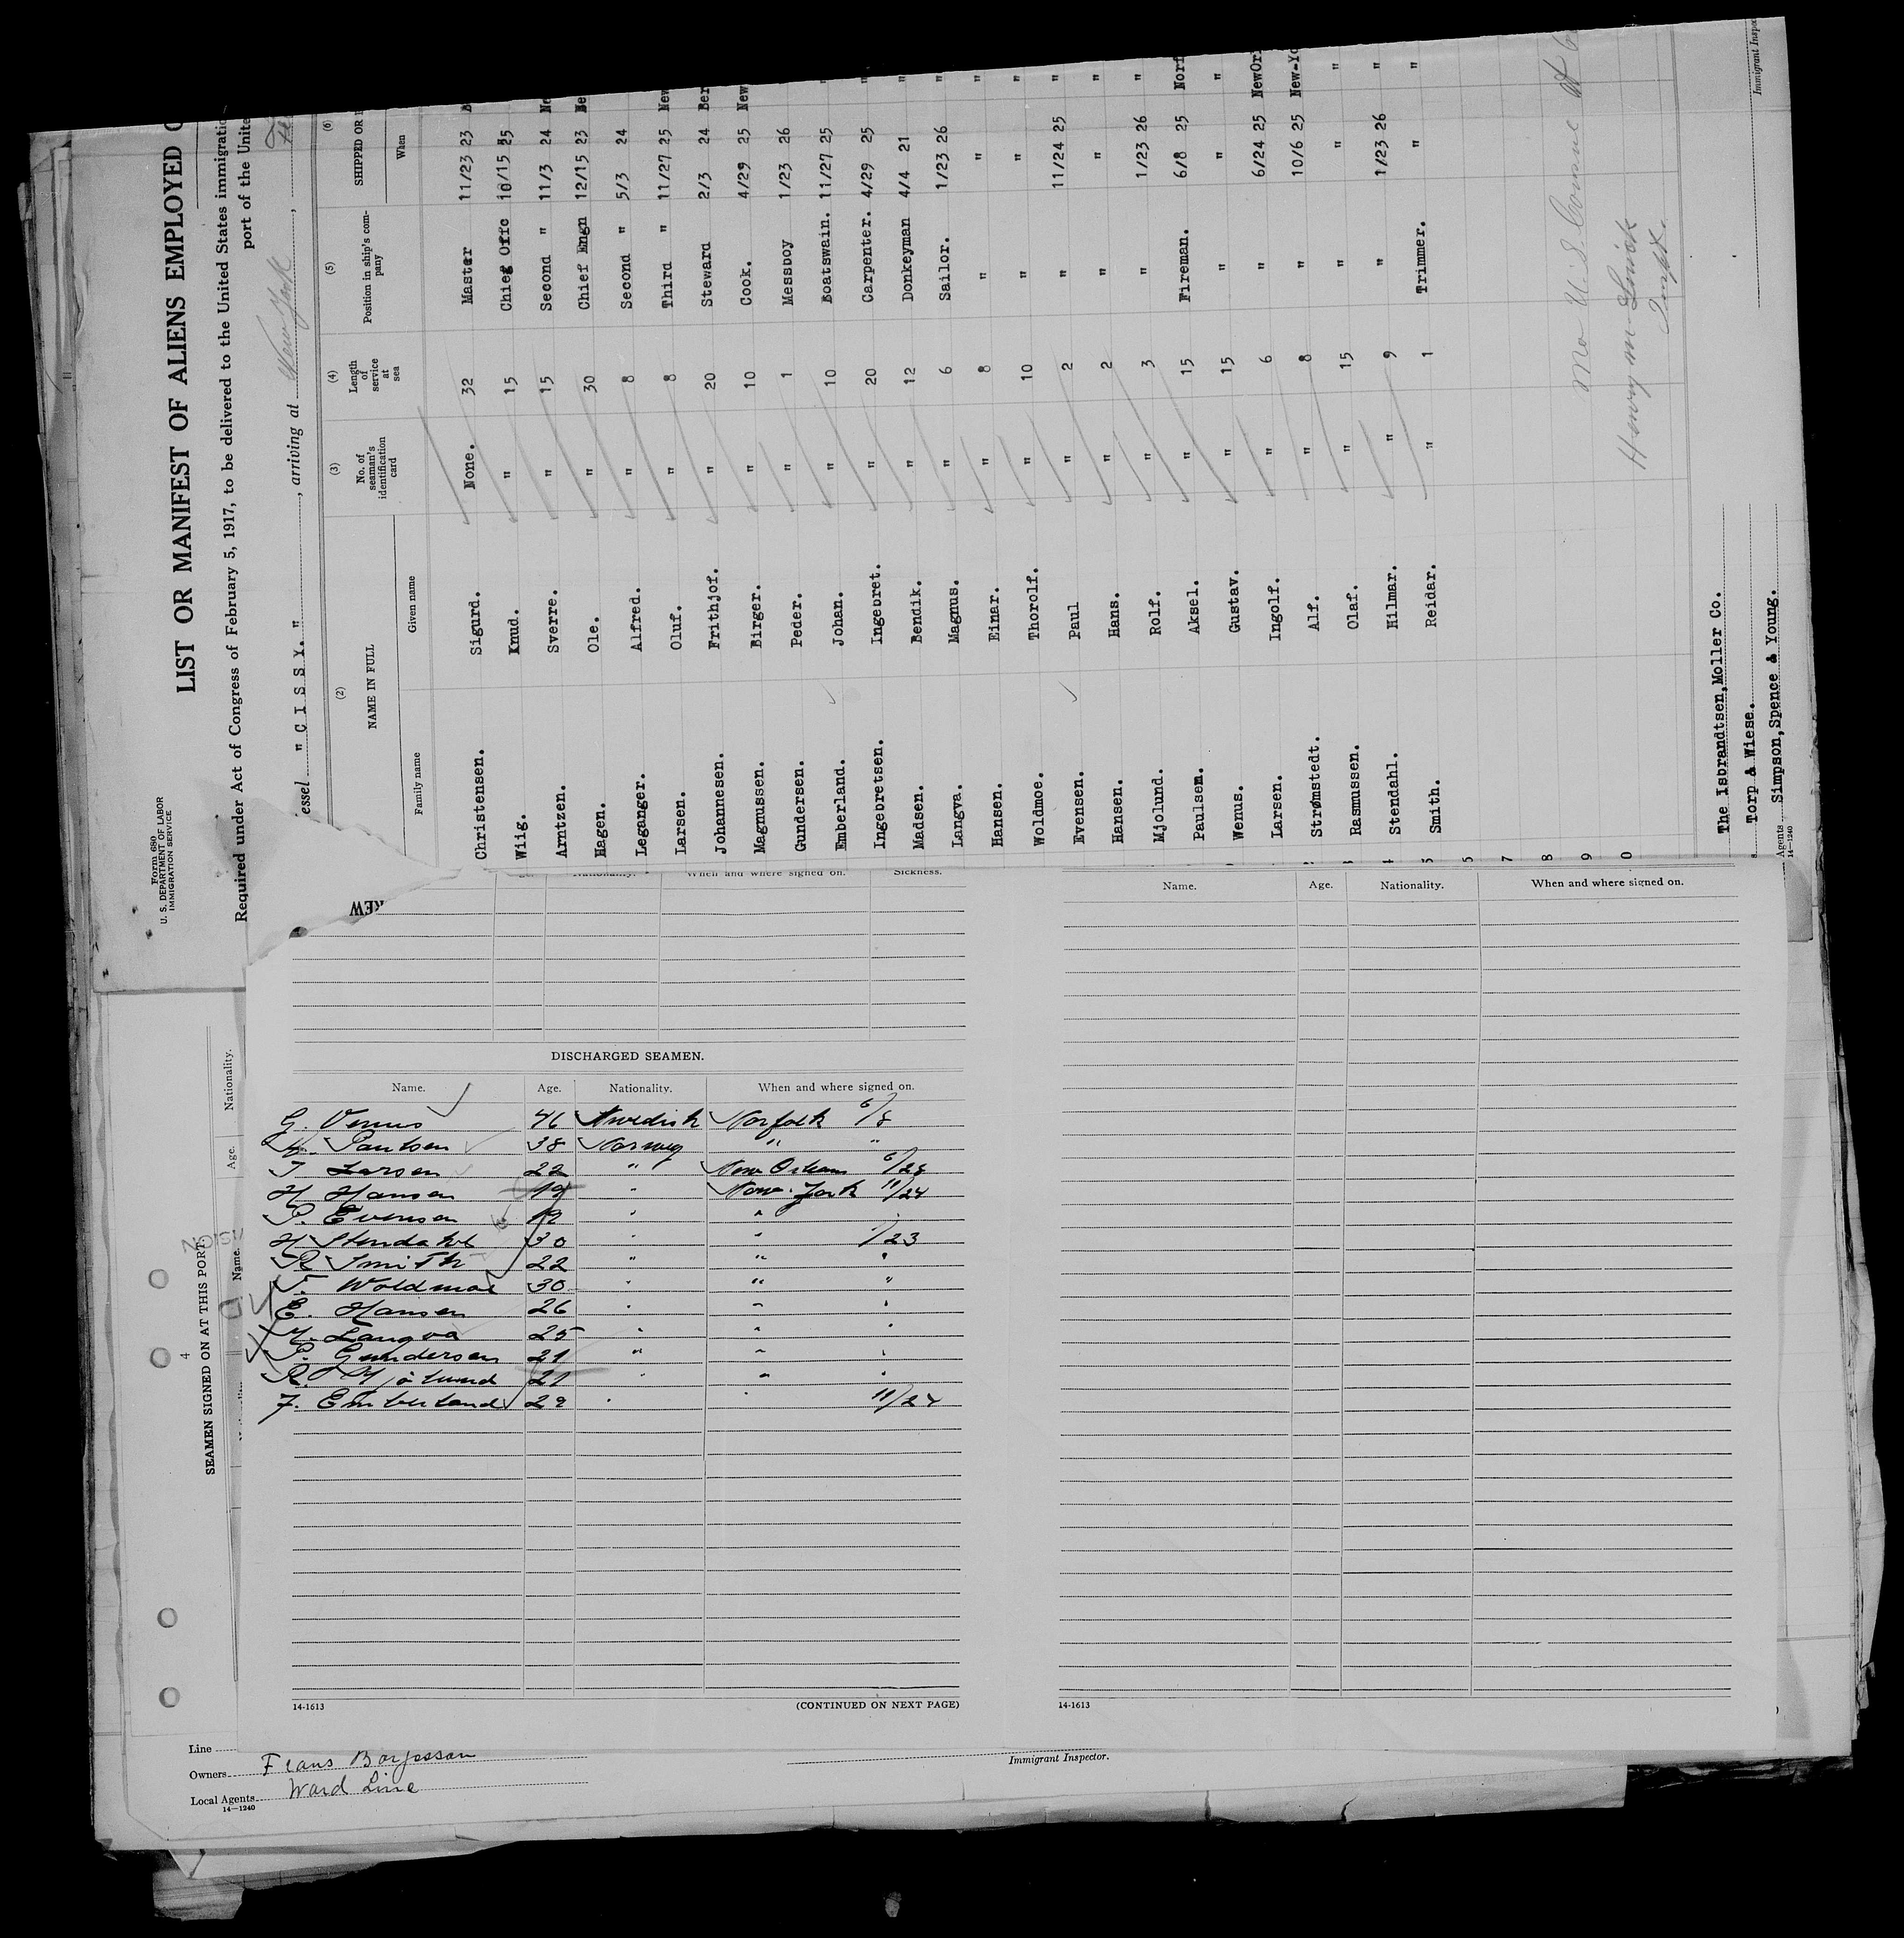 Form 680
U. S. DEPARTMENT OF LABOR
IMMIGRATION SERVICE
LIST OR MANIFEST OF ALIENS EMPLOYED
Required under Act of Congress of February 5, 1917, to be delivered to the United States immigratio
port of the Unite
essel "CISSY." , arriving at New York ,
(2) (3) (4) (5) (6)
NAME IN FULL No. of seaman's identification card Length of service at sea Position in ship's company SHIPPED OR
Family name Given name When
Christensen. Sigurd. None. 32 Master 11/23 23
Wiig. Knud. " 15 Chieg Offc 10/15 25
Arntzen. Sverre. " 15 Second " 11/3 24 Ne
Hagen. Ole. " 30 Chief Engn 12/15 23
Leganger. Alfred. " 8 Second " 5/3 24
Larsen. Oluf. " 8 Third " 11/27 25 New
Johannesen. Frithjof. " 20 Steward 2/3 24 Ber
Magnussen. Birger. " 10 Cook. 4/29 25 New
Gundersen. Peder. " 1 Messboy 1/23 26
Emberland. Johan. " 10 Boatswain. 11/27 25 "
Ingebretsen. Ingebret. " 20 Carpenter. 4/29 25 "
Madsen. Bendik. " 12 Donkeyman 4/4 21 "
Langva. Magnus. " 6 Sailor. 1/23 26 "
Hansen. Einar. " 8 " " "
Woldmoe. Thorolf. " 10 " " "
Evensen. Paul " 2 " 11/24 25 "
Hansen. Hans. " 2 " " "
Mjolund. Rolf. " 3 " 1/23 26 "
Paulsen. Aksel. " 15 Fireman. 6/8 25 Norf
Wenus. Gustav. " 15 " " "
Larsen. Ingolf. " 6 " 6/24 25 NewOr
Strømstedt. Alf. " 8 " 10/6 25 New-Yo
Rasmussen. Olaf. " 15 " " "
Stendahl. Hilmar. " 9 " 1/23 26 "
Smith. Reidar. " 1 Trimmer. " "
7
8
9
0
No U.S. Consul at
The Isbrandtsen,Moller Co.
Torp & Wiese.
Agents Simpson,Spence & Young.
14-1240
Immigrant Inspec
REW
Nationality. When and where signed on. Sickness.
DISCHARGED SEAMEN.
Name. Age. Nationality. When and where signed on.
G. Venus 46 Swedish Norfolk 6/8
Paulsen 38 Norweg " "
I Larsen 22 " New Orleans 6/24
H Hansen 19 " New York 11/24
P. Evensen 19 " "
H Stendahl 30 " " 1/23
R Smith 22 " " "
T. Woldmoe 30 " " "
E. Hansen 26 " " "
M. Langva 25 " " "
P. Gundersen 21 " " "
R. Mjölund 21 " " "
J. Emberland 29 " " 11/24
14-1613 (CONTINUED ON NEXT PAGE)
Name. Age. Nationality. When and where signed on.
14-1613
4
SEAMEN SIGNED ON AT THIS PORT.
Name. Age. Nationality.
Line
Owners Frans Borjesson
Local Agents Ward Line
14—1240
Immigrant Inspector.